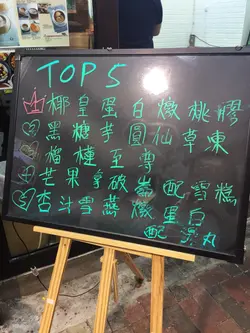 TOP 5
椰皇蛋白燉桃膠
② 黑糖芋圓仙草凍
③ 榴槤至尊
④ 芒果拿破崙配雪糕
⑤ 杏汁雪燕燉蛋白
配湯丸